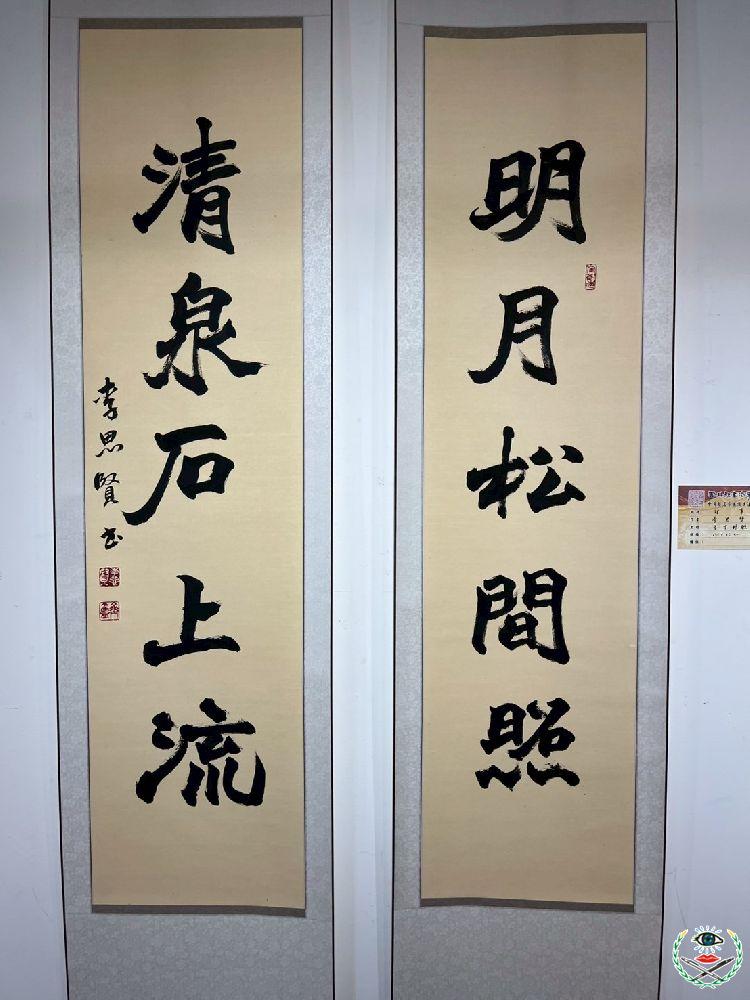 明月松間照
清泉石上流
李思賢书